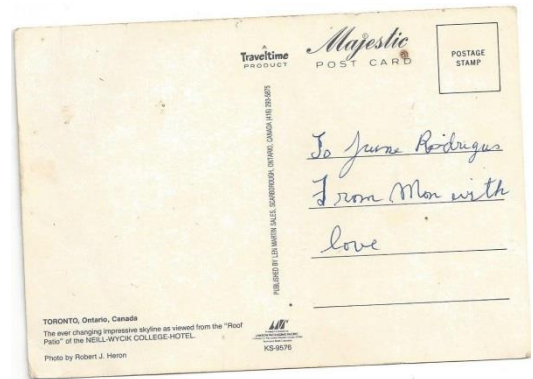 A
Traveltime
PRODUCT
Majestic
POST CARD
POSTAGE
STAMP
PUBLISHED BY LEN MARTIN SALES, SCARBOROUGH, ONTARIO, CANADA (416) 293-5675
To June Rodrigus
From Mon with
love
TORONTO, Ontario, Canada
The ever changing impressive skyline as viewed from the "Roof
Patio" of the NEILL-WYCIK COLLEGE-HOTEL.
Photo by Robert J. Heron
KS-9576